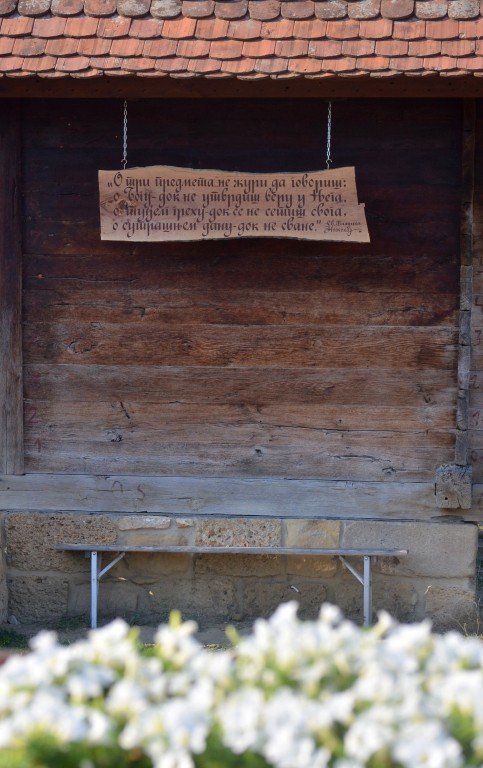 „О три предмета не жури да говориш:
о Богу-док не утврдиш веру у Њега,
о туђем греху-док се не сетиш свога,
о сутрашњем дану-док не сване."